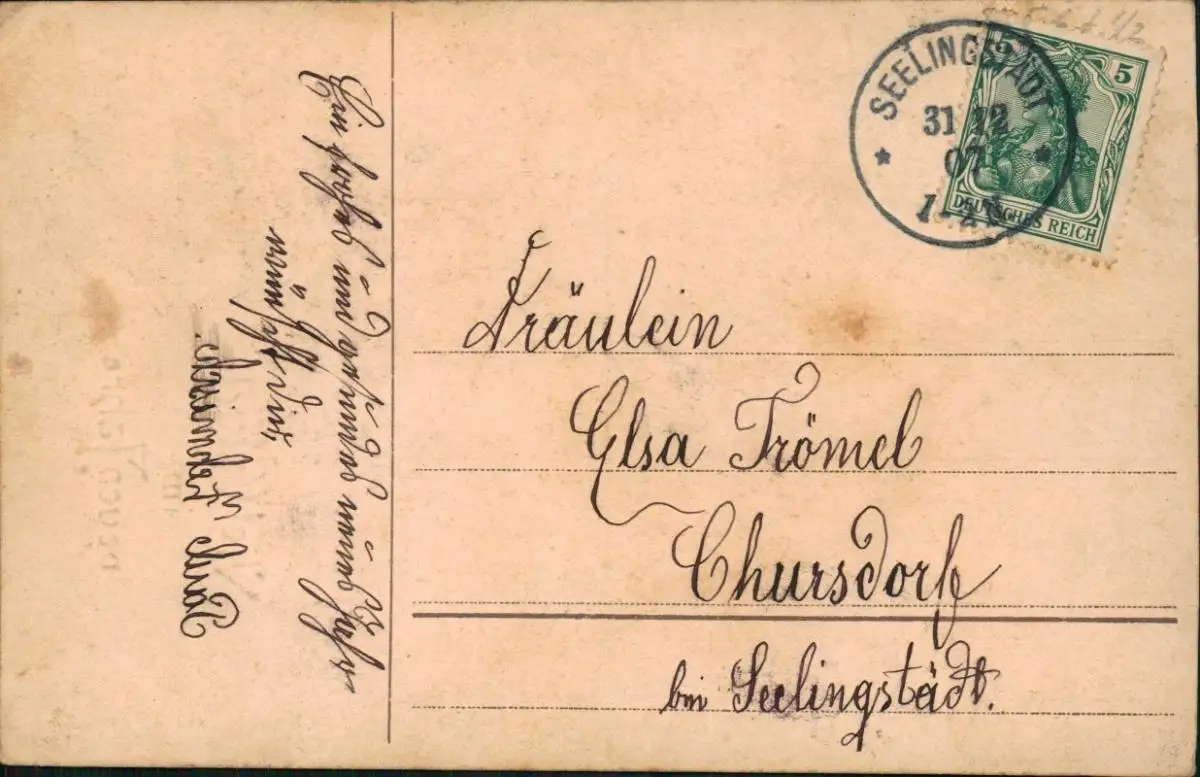 SEELINGSTÄDT
31 12
07
5
DEUTSCHES REICH
Fräulein
Elsa Trömel
Chursdorf
bei Seelingstädt.
Ein frohes und gesundes neues Jahr
wünscht Dir
neuen Jahre